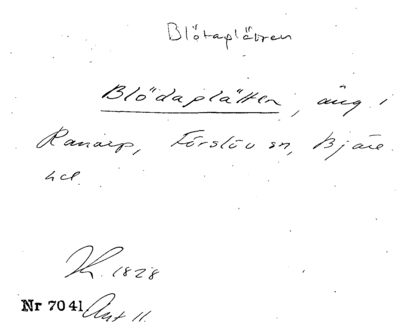 Blötaplätten
Blödaplätten, äng i
Ranarp, Förslöv sn, Bjäre
hd.
Kr. 1828
Nr 7041 Akt 11.